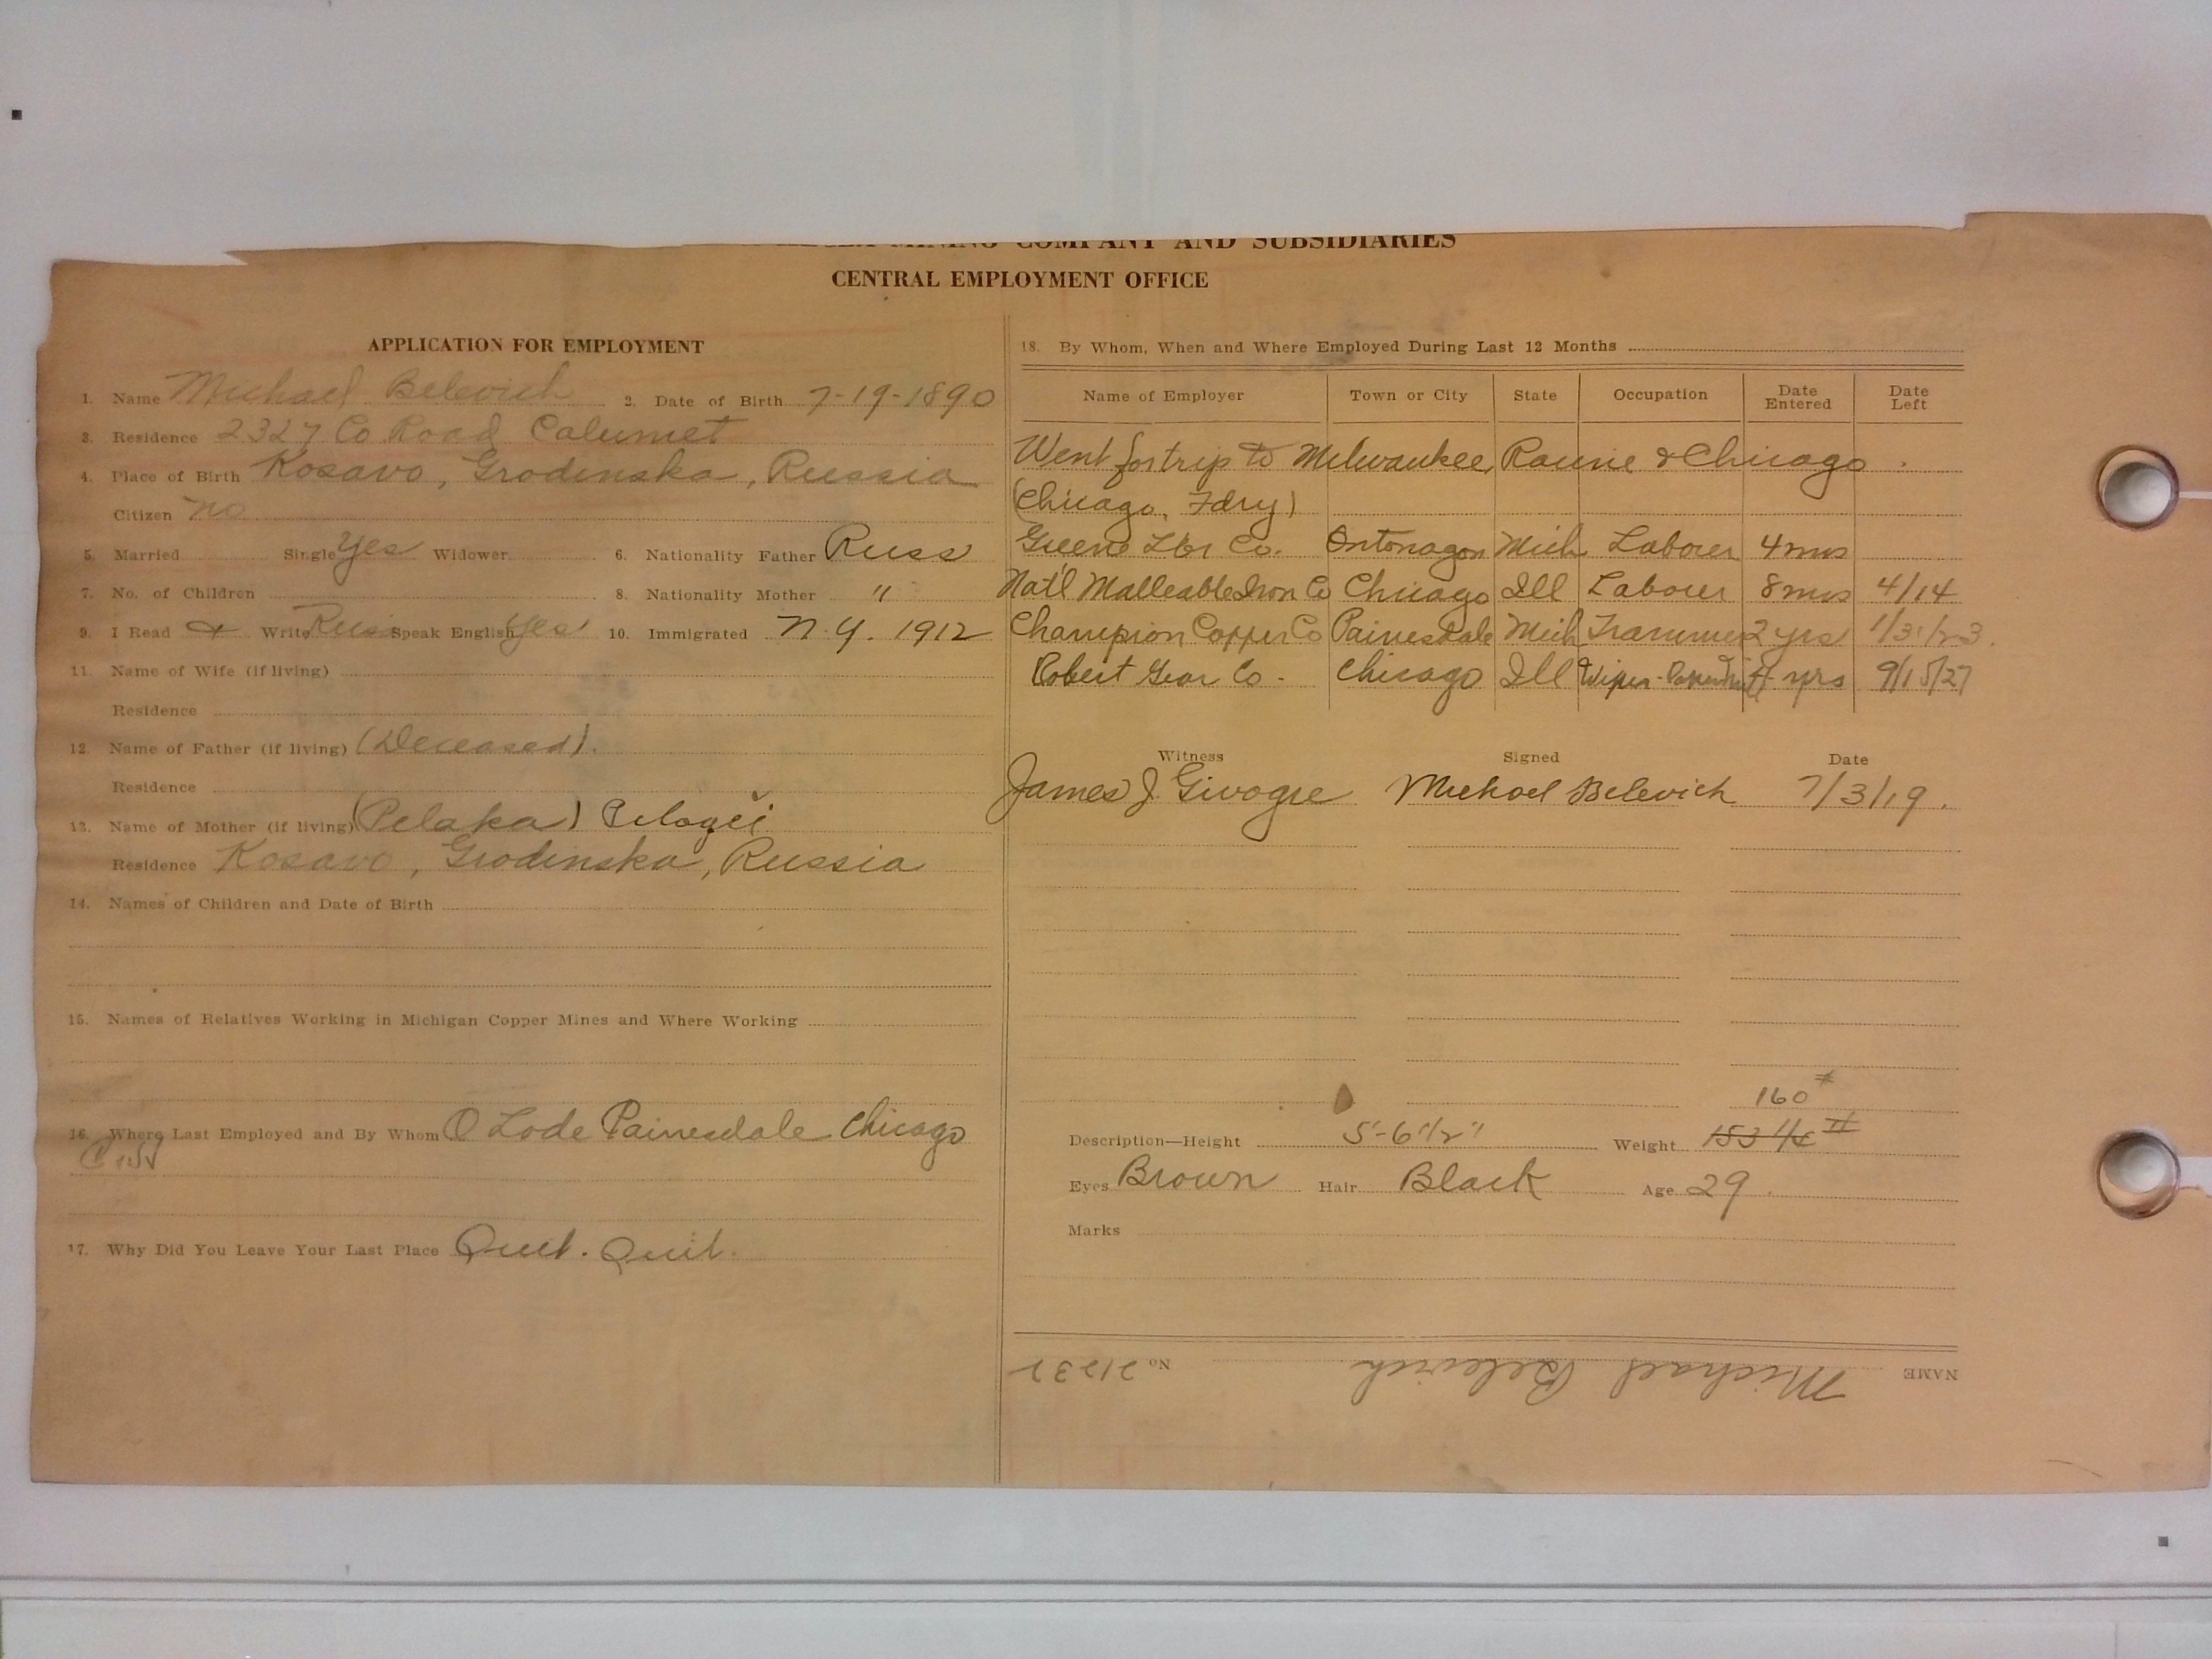 MINING COMPANY AND SUBSIDIARIES
CENTRAL EMPLOYMENT OFFICE
APPLICATION FOR EMPLOYMENT
1. Name Michael Belevich 2. Date of Birth 7-19-1890
3. Residence 2327 Co Road Calumet
4. Place of Birth Kosavo, Grodinska, Russia
Citizen no
5. Married Single Yes Widower 6. Nationality Father Russ
7. No. of Children 8. Nationality Mother "
9. I Read & Write Russ Speak English Yes 10. Immigrated N.Y. 1912
11. Name of Wife (if living)
Residence
12. Name of Father (if living) (Deceased).
Residence
13. Name of Mother (if living) (Pelaka) Pelagei
Residence Kosavo, Grodinska, Russia
14. Names of Children and Date of Birth
15. Names of Relatives Working in Michigan Copper Mines and Where Working
16. Where Last Employed and By Whom O Lode Painesdale Chicago
17. Why Did You Leave Your Last Place Quit. Quit.
18. By Whom, When and Where Employed During Last 12 Months
Name of Employer Town or City State Occupation Date Entered Date Left
Went for trip to Milwaukee, Racine & Chicago.
(Chicago, Fdry)
Greene Lbr Co. Ontonagon Mich Laborer 4 mos
Nat'l Malleable Iron Co Chicago Ill Laborer 8 mos 4/14
Champion Copper Co Painesdale Mich Trammer 2 yrs 1/31/23.
Robert Gear Co. Chicago Ill Wiper yrs 9/15/27
Witness Signed Date
James J. Givogre Michael Belevich 7/3/19.
160#
Description—Height 5'-6 1/2" Weight 153 1/4 #
Eyes Brown Hair Black Age 29.
Marks
NAME Michael Belevich No 21232